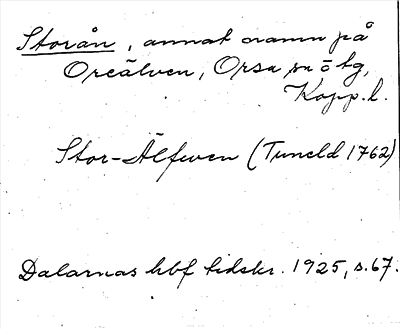 Storån, annat namn på
Oreälven, Orsa sn o tg,
Kopp.l.
Stor-Älfwen (Tuneld 1762)
Dalarnas hbf tidskr. 1925, s.67.